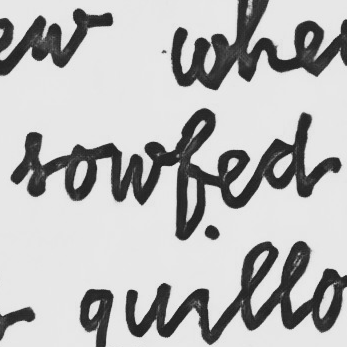 ew whe
sowfed
quillo